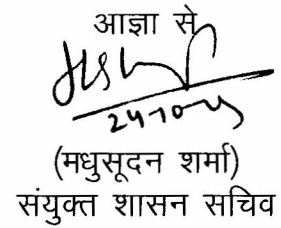 आज्ञा से
24-10-25
(मधुसूदन शर्मा)
संयुक्त शासन सचिव